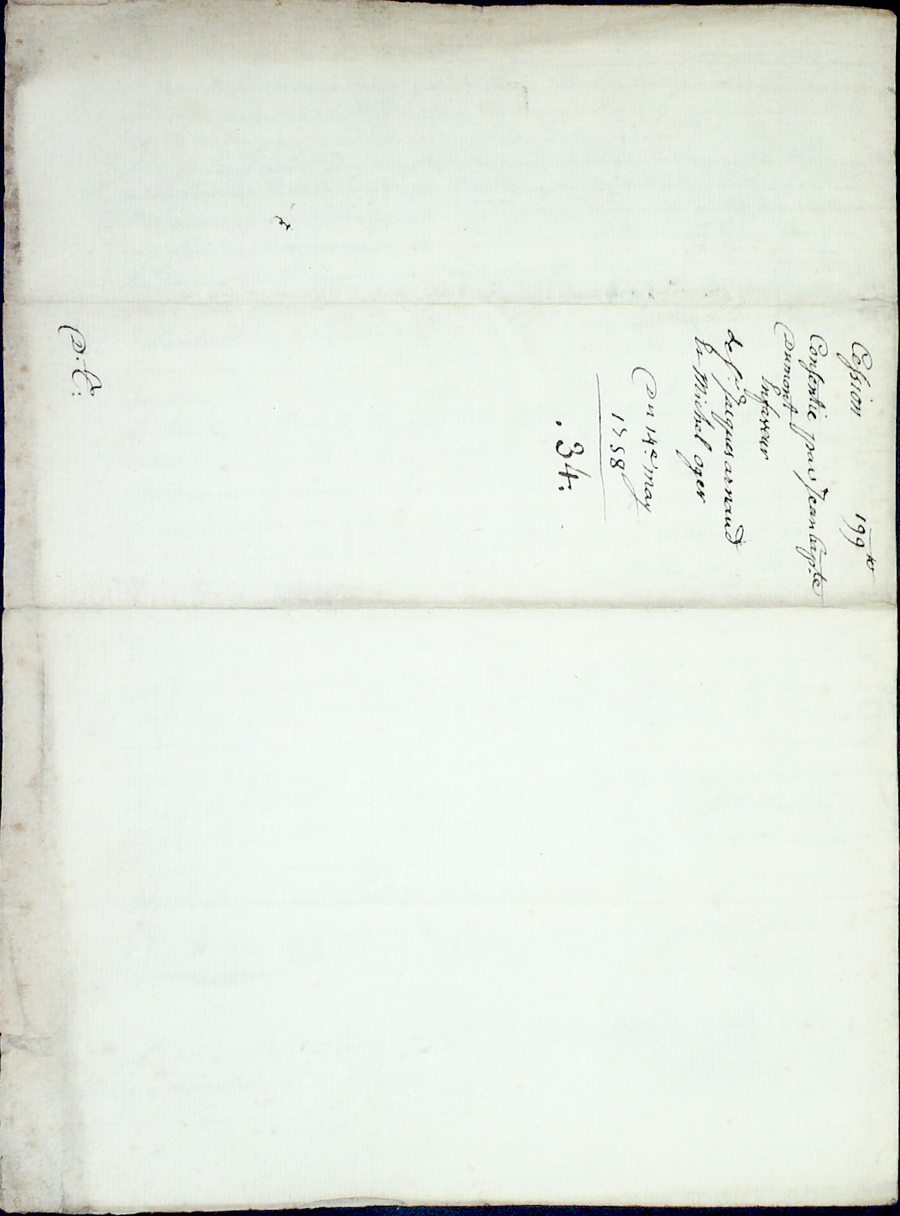 199
Cession
Consentie par Jean bapte
Dumont
En faveur
de Sr. Jacques arnaud
Et Michel oger
Du 14e. may
1758
.34.
D. C: